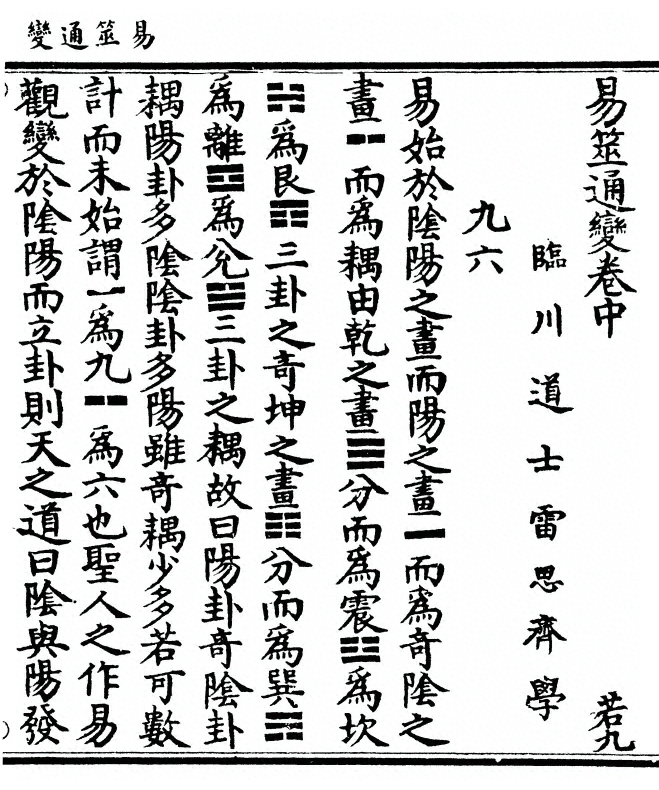 易筮通變
易筮通變卷中
若九
臨川道士雷思齊學
九六
易始於隂陽之畫而陽之畫⚊而爲奇隂之
畫⚋而爲耦由乾之畫☰分而爲震☳爲坎
☵爲艮☶三卦之奇坤之畫☷分而爲巽☴
爲離☲爲兊☱三卦之耦故曰陽卦奇隂卦
耦陽卦多隂隂卦多陽雖奇耦少多若可數
計而未始謂⚊爲九⚋爲六也聖人之作易
觀變於隂陽而立卦則天之道曰隂與陽發